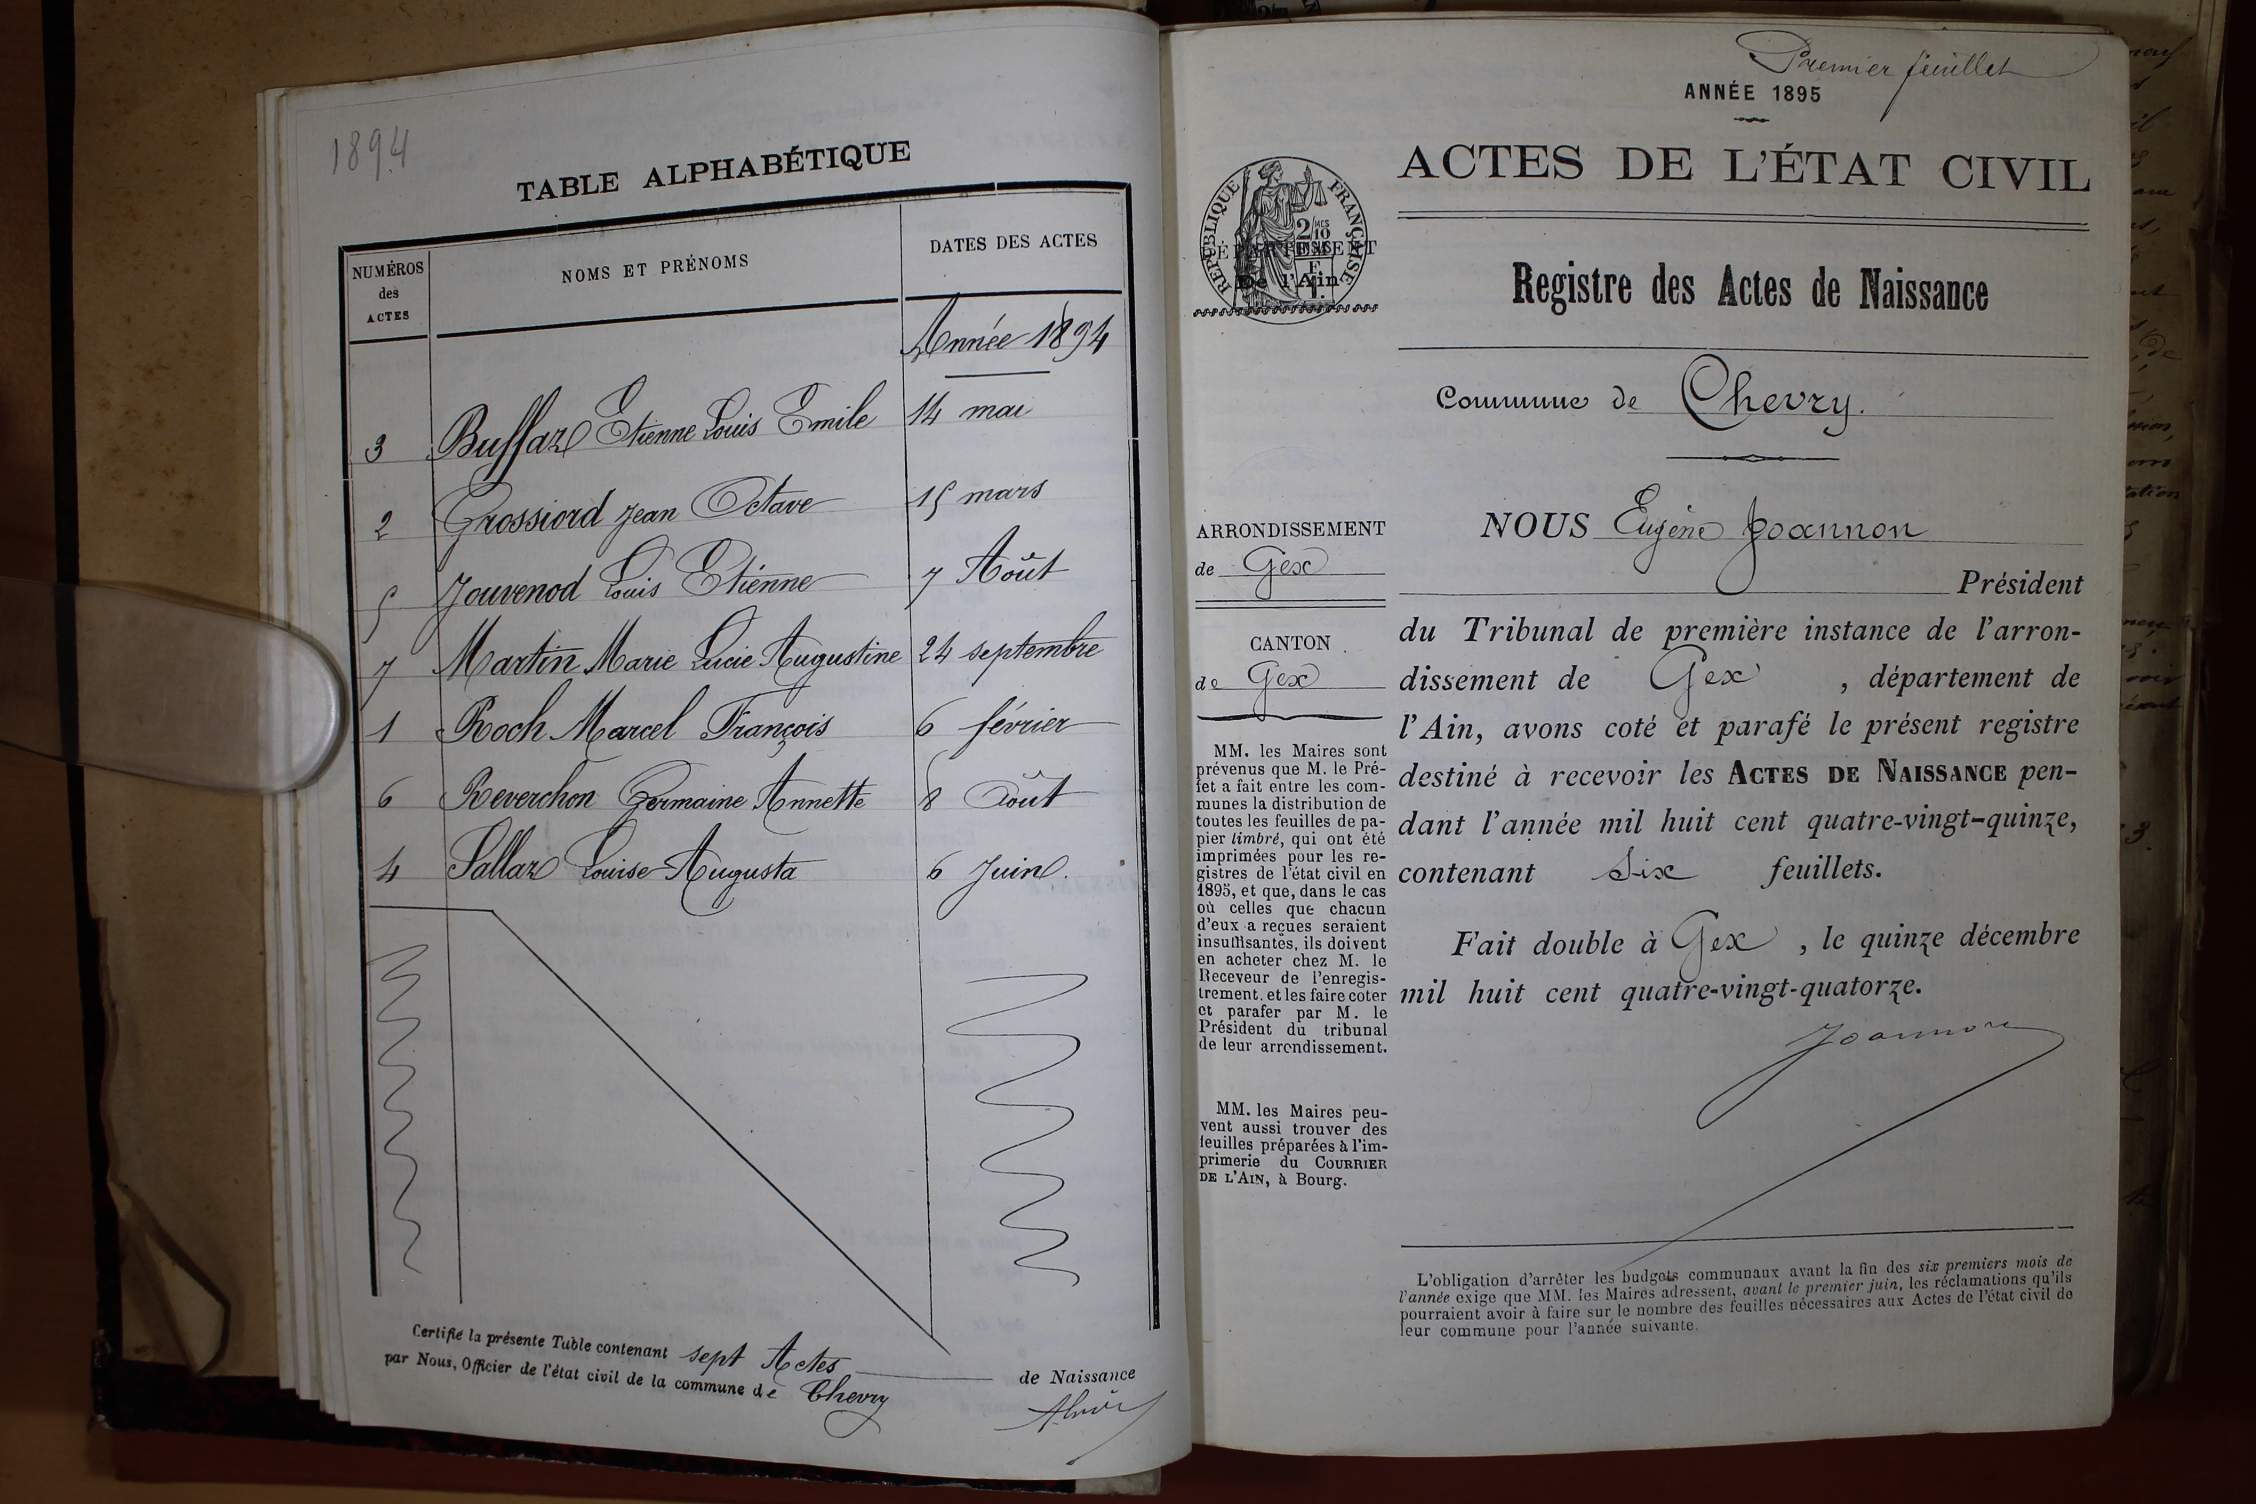 1894
TABLE ALPHABÉTIQUE
NUMÉROS des ACTES
NOMS ET PRÉNOMS
DATES DES ACTES
Année 1894
3 Buffaz Etienne Louis Emile 14 mai
2 Grossiord Jean Octave 15 mars
5 Jouvenod Louis Etienne 7 Août
7 Martin Marie Lucie Augustine 24 septembre
1 Roch Marcel François 6 février
6 Reverchon Germaine Annette 8 Août
4 Sallaz Louise Augusta 6 Juin.
Certifié la présente Table contenant sept Actes de Naissance
par Nous, Officier de l'état civil de la commune de Chevry
Premier feuillet
ANNÉE 1895
ACTES DE L'ÉTAT CIVIL
RÉPUBLIQUE FRANÇAISE
DÉPARTEMENT
De l'Ain
Registre des Actes de Naissance
Commune de Chevry.
ARRONDISSEMENT
de Gex
CANTON
de Gex
MM. les Maires sont
prévenus que M. le Pré-
fet a fait entre les com-
munes la distribution de
toutes les feuilles de pa-
pier timbré, qui ont été
imprimées pour les re-
gistres de l'état civil en
1895, et que, dans le cas
où celles que chacun
d'eux a reçues seraient
insuffisantes, ils doivent
en acheter chez M. le
Receveur de l'enregis-
trement, et les faire coter
et parafer par M. le
Président du tribunal
de leur arrondissement.
MM. les Maires peu-
vent aussi trouver des
feuilles préparées à l'im-
primerie du COURRIER
DE L'AIN, à Bourg.
NOUS Eugène Joannon
Président
du Tribunal de première instance de l'arron-
dissement de Gex , département de
l'Ain, avons coté et parafé le présent registre
destiné à recevoir les ACTES DE NAISSANCE pen-
dant l'année mil huit cent quatre-vingt-quinze,
contenant Six feuillets.
Fait double à Gex , le quinze décembre
mil huit cent quatre-vingt-quatorze.
Joannon
L'obligation d'arrêter les budgets communaux avant la fin des six premiers mois de
l'année exige que MM. les Maires adressent, avant le premier juin, les réclamations qu'ils
pourraient avoir à faire sur le nombre des feuilles nécessaires aux Actes de l'état civil de
leur commune pour l'année suivante.